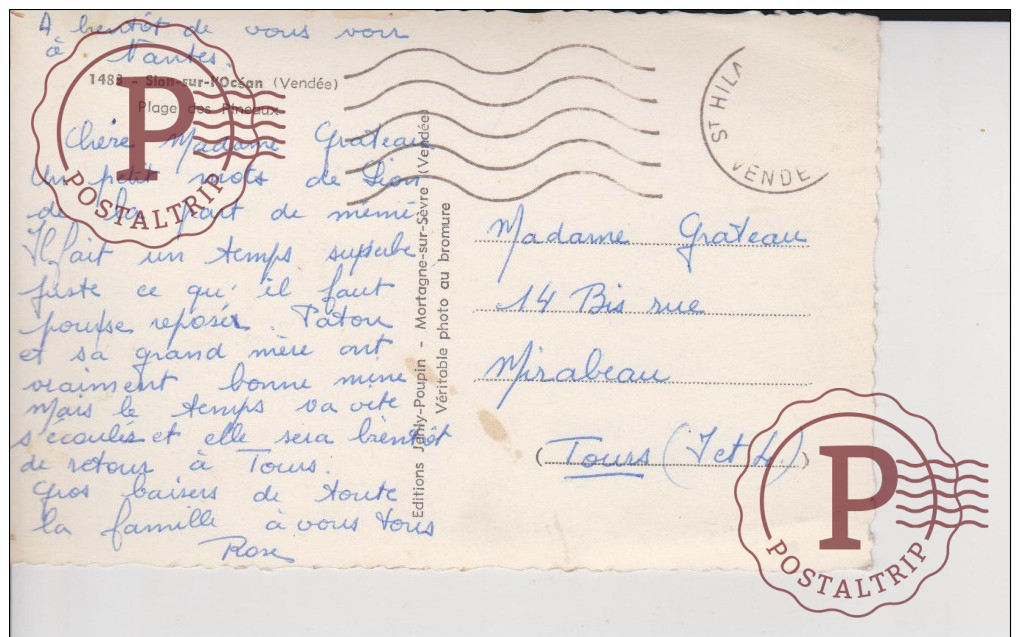 A bientôt de vous voir
à Nantes.
1483 - Sion-sur-l'Océan (Vendée)
Plage des Pineaux
Chère Madame Grateau
Un petit mots de Sion
de la part de mémé
Il fait un temps superbe
juste ce qu'il faut
pour se reposer. Patou
et sa grand mère ont
vraiment bonne mine
Mais le temps va vite
s'écoulés et elle sera bientôt
de retour à Tours.
Gros baisers de toute
la famille à vous tous
Rose
Editions Jehly-Poupin - Mortagne-sur-Sèvre (Vendée)
Véritable photo au bromure
ST HILA
VENDE
Madame Grateau
14 Bis rue
Mirabeau
(Tours (I et L.))
P
POSTALTRIP
P
POSTALTRIP